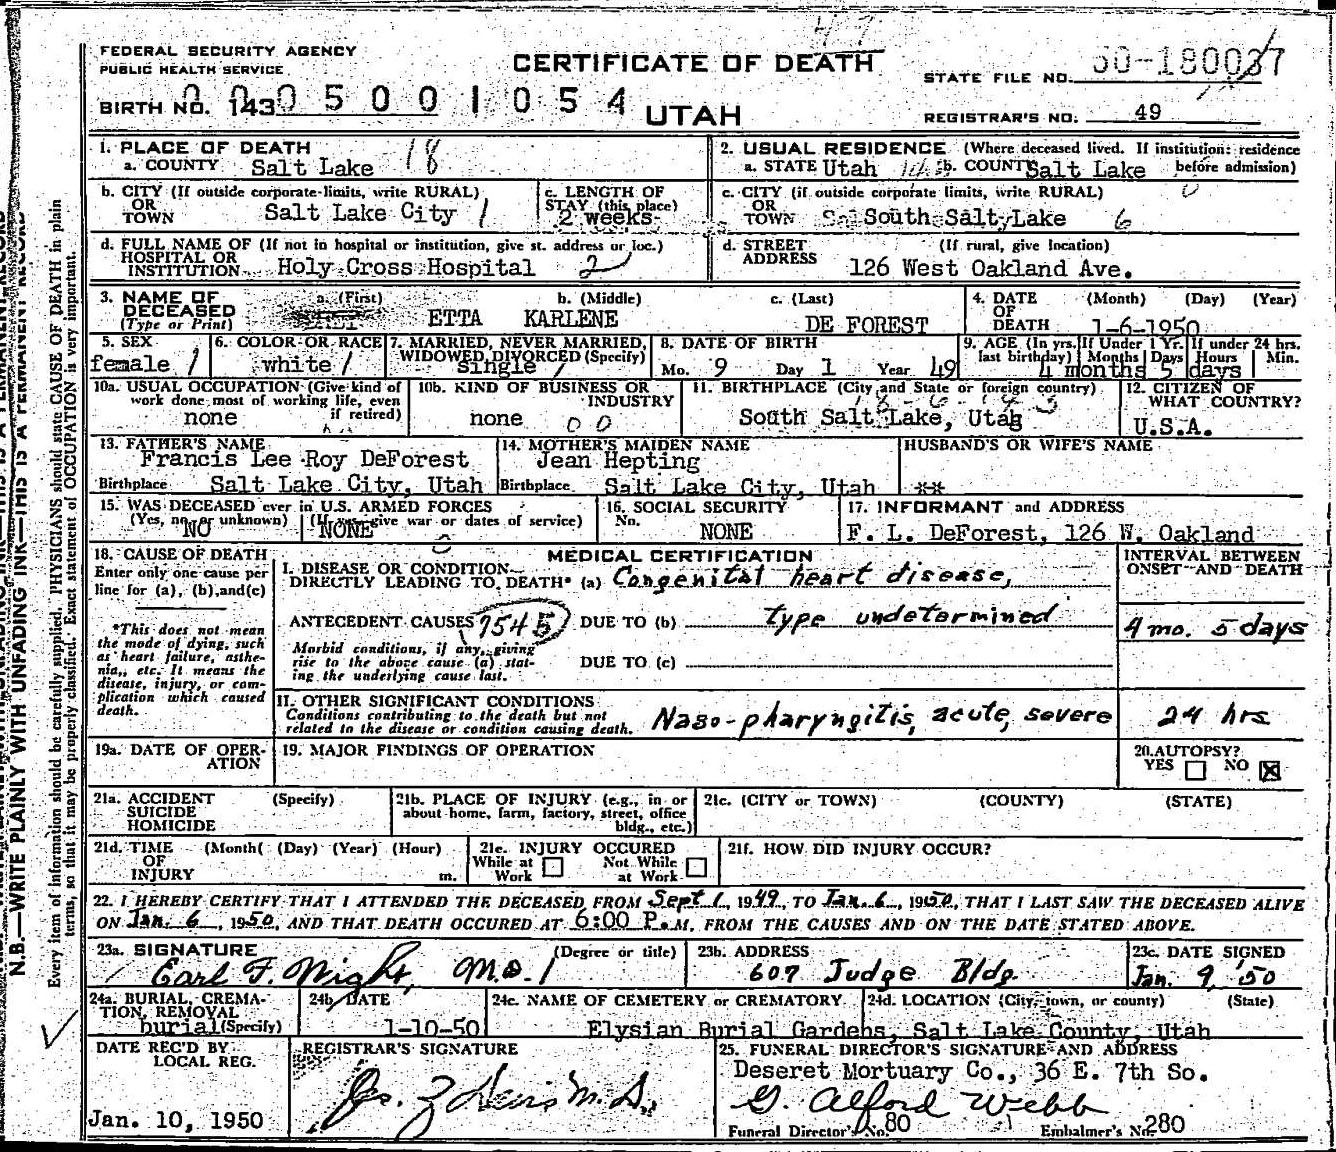 47
FEDERAL SECURITY AGENCY
PUBLIC HEALTH SERVICE
CERTIFICATE OF DEATH
UTAH
STATE FILE NO. 50-180037
BIRTH NO. 143 0005001054
REGISTRAR'S NO. 49
1. PLACE OF DEATH
a. COUNTY Salt Lake 18
2. USUAL RESIDENCE (Where deceased lived. If institution: residence before admission)
a. STATE Utah b. COUNTY Salt Lake
b. CITY (If outside corporate limits, write RURAL)
OR
TOWN Salt Lake City 1
c. LENGTH OF
STAY (this place)
2 weeks
c. CITY (if outside corporate limits, write RURAL)
OR
TOWN South Salt Lake 6
d. FULL NAME OF (If not in hospital or institution, give st. address or loc.)
HOSPITAL OR
INSTITUTION Holy Cross Hospital 2
d. STREET (If rural, give location)
ADDRESS 126 West Oakland Ave.
3. NAME OF
DECEASED
(Type or Print)
a. (First) b. (Middle) c. (Last)
ETTA KARLENE DE FOREST
4. DATE (Month) (Day) (Year)
OF
DEATH 1-6-1950
5. SEX
female 1
6. COLOR OR RACE
white 1
7. MARRIED, NEVER MARRIED,
WIDOWED DIVORCED (Specify)
single 1
8. DATE OF BIRTH
Mo. 9 Day 1 Year 49
9. AGE (In yrs. last birthday) If Under 1 Yr. Months Days If under 24 hrs. Hours Min.
4 months 5 days
10a. USUAL OCCUPATION (Give kind of
work done most of working life, even
if retired)
none
10b. KIND OF BUSINESS OR
INDUSTRY
none 00
11. BIRTHPLACE (City and State or foreign country)
South Salt Lake, Utah
12. CITIZEN OF
WHAT COUNTRY?
U.S.A.
13. FATHER'S NAME
Francis Lee Roy DeForest
Birthplace Salt Lake City, Utah
14. MOTHER'S MAIDEN NAME
Jean Hepting
Birthplace Salt Lake City, Utah
HUSBAND'S OR WIFE'S NAME
**
15. WAS DECEASED ever in U.S. ARMED FORCES
(Yes, no or unknown) (If yes give war or dates of service)
NO NONE
16. SOCIAL SECURITY
No.
NONE
17. INFORMANT and ADDRESS
F. L. DeForest, 126 W. Oakland
18. CAUSE OF DEATH
Enter only one cause per
line for (a), (b), and (c)
*This does not mean
the mode of dying, such
as heart failure, asthe-
nia, etc. It means the
disease, injury, or com-
plication which caused
death.
MEDICAL CERTIFICATION
INTERVAL BETWEEN
ONSET AND DEATH
I. DISEASE OR CONDITION
DIRECTLY LEADING TO DEATH* (a) Congenital heart disease,
ANTECEDENT CAUSES 7545 DUE TO (b) type undetermined
4 mo. 5 days
Morbid conditions, if any, giving
rise to the above cause (a) stat-
ing the underlying cause last.
DUE TO (c)
II. OTHER SIGNIFICANT CONDITIONS
Conditions contributing to the death but not
related to the disease or condition causing death.
Naso-pharyngitis, acute, severe
24 hrs
19a. DATE OF OPER-
ATION
19. MAJOR FINDINGS OF OPERATION
20. AUTOPSY?
YES NO X
21a. ACCIDENT (Specify)
SUICIDE
HOMICIDE
21b. PLACE OF INJURY (e.g., in or
about home, farm, factory, street, office
bldg., etc.)
21c. (CITY or TOWN) (COUNTY) (STATE)
21d. TIME (Month( (Day) (Year) (Hour)
OF
INJURY m.
21e. INJURY OCCURED
While at Work Not While at Work
21f. HOW DID INJURY OCCUR?
22. I HEREBY CERTIFY THAT I ATTENDED THE DECEASED FROM Sept 1, 1949, TO Jan. 6, 1950, THAT I LAST SAW THE DECEASED ALIVE
ON Jan. 6, 1950, AND THAT DEATH OCCURED AT 6:00 P.M. FROM THE CAUSES AND ON THE DATE STATED ABOVE.
23a. SIGNATURE (Degree or title)
Earl F. Wight, M.D. 1
23b. ADDRESS
607 Judge Bldg
23c. DATE SIGNED
Jan. 9, '50
24a. BURIAL, CREMA-
TION, REMOVAL
burial (Specify)
24b DATE
1-10-50
24c. NAME OF CEMETERY or CREMATORY
24d. LOCATION (City, town, or county) (State)
Elysian Burial Gardens, Salt Lake County, Utah
DATE REC'D BY
LOCAL REG.
Jan. 10, 1950
REGISTRAR'S SIGNATURE
M.D.
25. FUNERAL DIRECTOR'S SIGNATURE AND ADDRESS
Deseret Mortuary Co., 36 E. 7th So.
G. Alford Webb
Funeral Director's No. 80 Embalmer's No. 280
N.B.—WRITE PLAINLY WITH UNFADING INK—THIS IS A PERMANENT RECORD
Every item of information should be carefully supplied. PHYSICIANS should state CAUSE OF DEATH in plain
terms, so that it may be properly classified. Exact statement of OCCUPATION is very important.